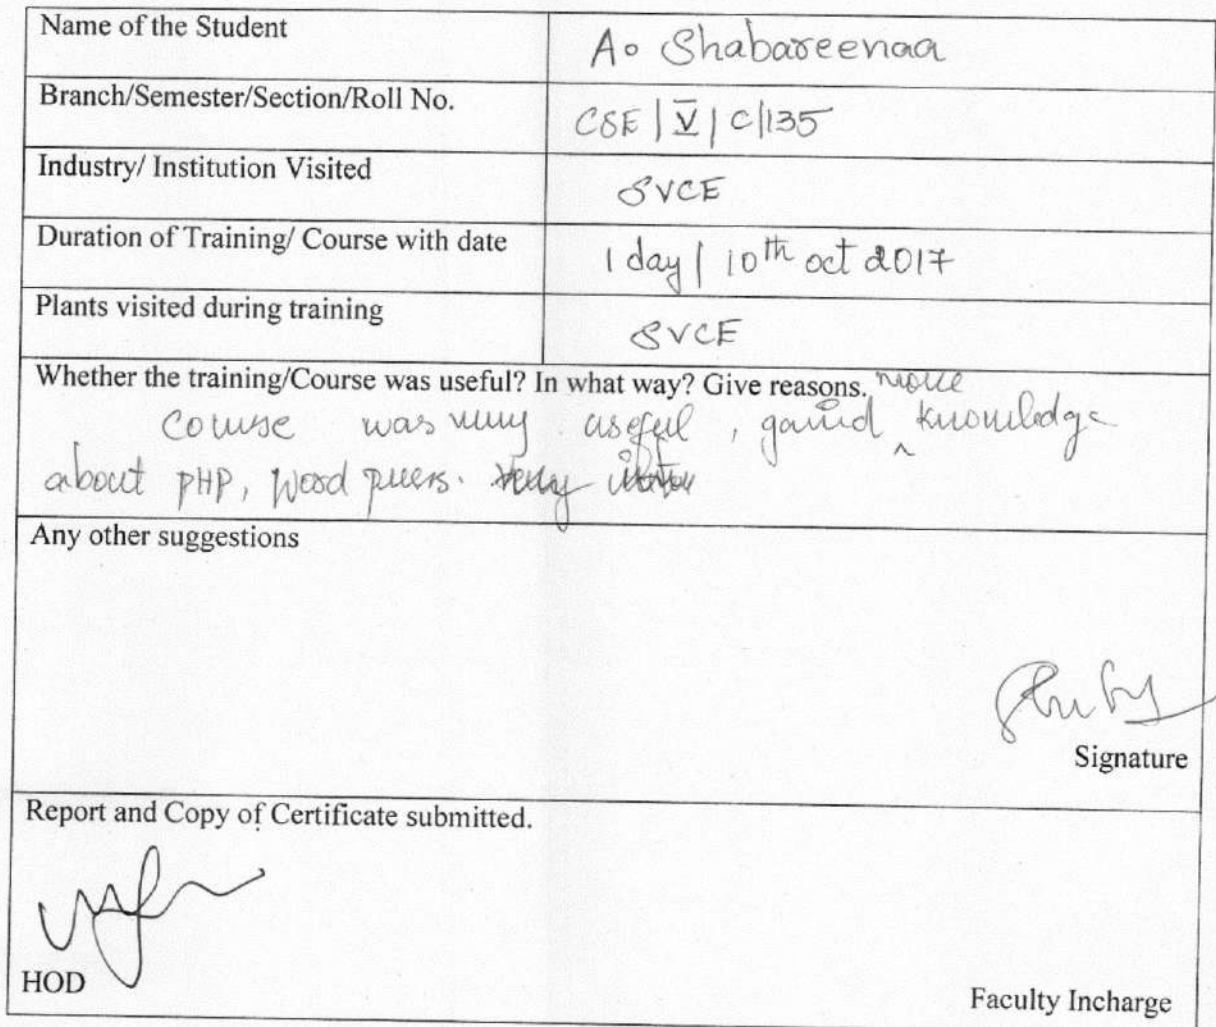 Name of the Student A. Shabareenaa
Branch/Semester/Section/Roll No. CSE | V | C/135
Industry/ Institution Visited SVCE
Duration of Training/ Course with date 1 day | 10th oct 2017
Plants visited during training SVCE
Whether the training/Course was useful? In what way? Give reasons.
course was very useful, gained more knowledge
about PHP, Word press.
Any other suggestions
Signature
Report and Copy of Certificate submitted.
HOD
Faculty Incharge